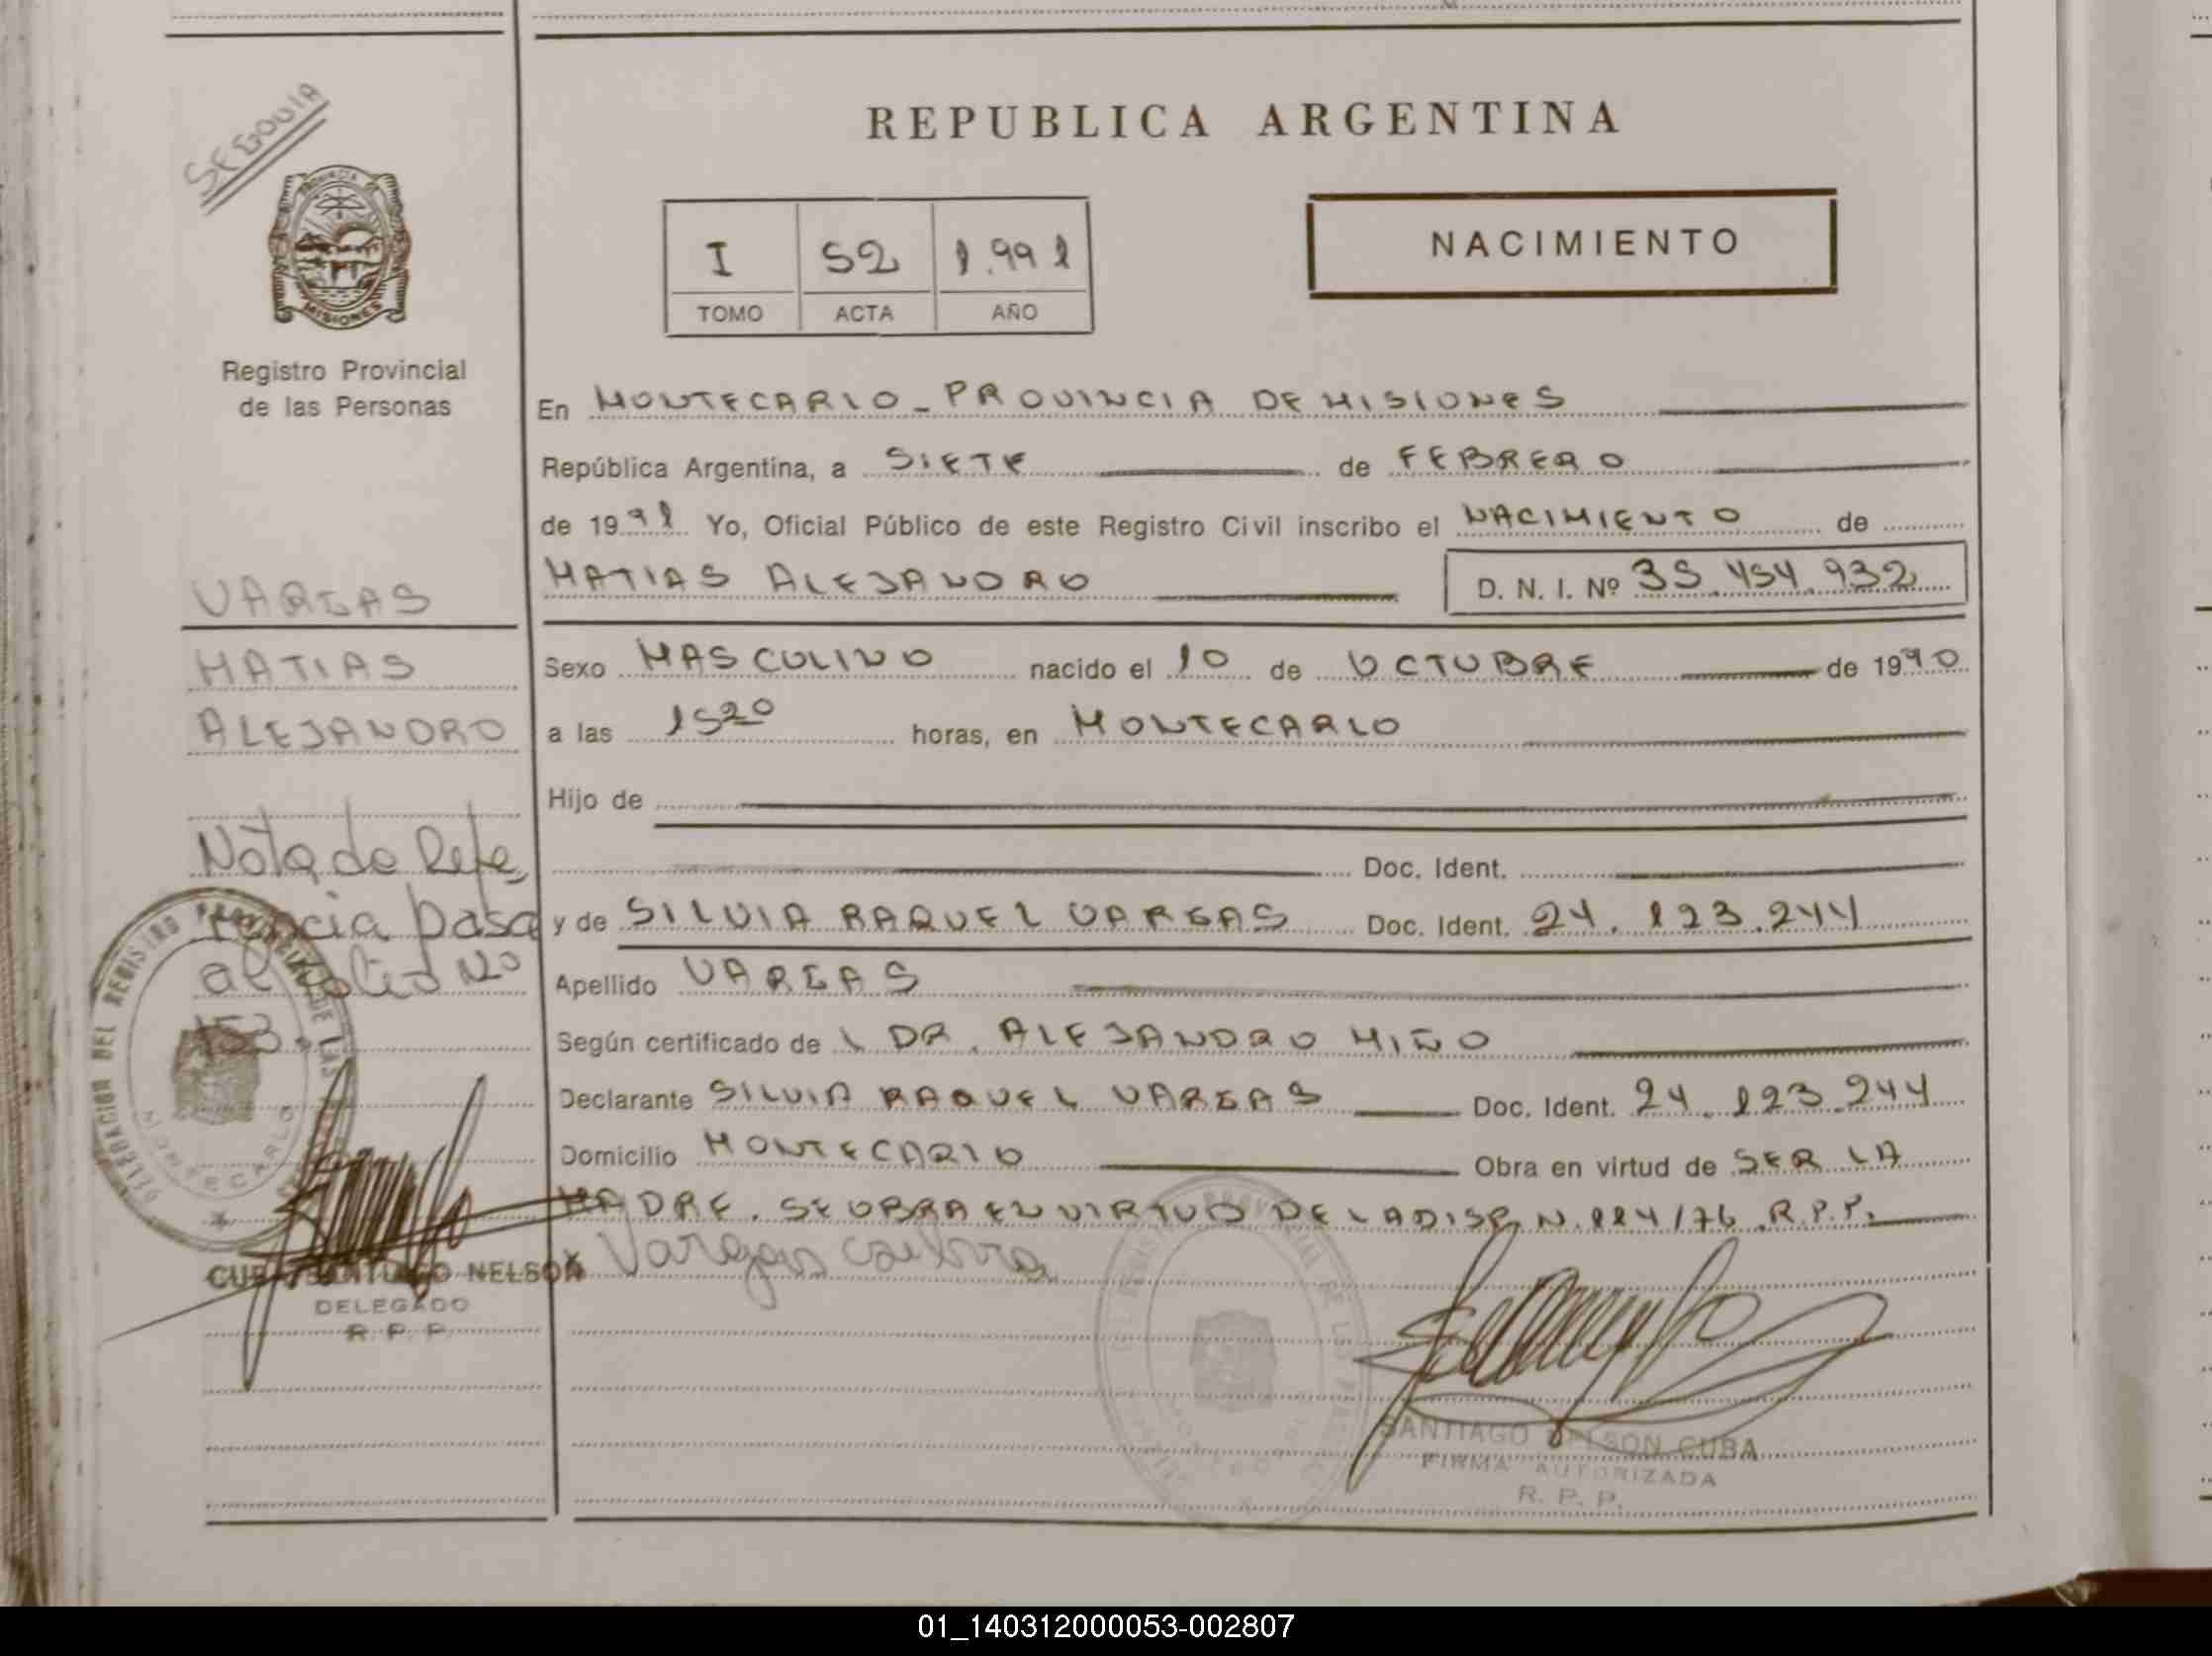 SEGOVIA
PROVINCIA
MISIONES
Registro Provincial
de las Personas
REPUBLICA ARGENTINA
I 52 1.991
TOMO ACTA AÑO
NACIMIENTO
En MONTECARLO - PROVINCIA DE MISIONES
República Argentina, a SIETE de FEBRERO
de 1991 Yo, Oficial Público de este Registro Civil inscribo el NACIMIENTO de
MATIAS ALEJANDRO D. N. I. Nº 35.454.932
Sexo MASCULINO nacido el 10 de OCTUBRE de 1990
a las 1520 horas, en MONTECARLO
Hijo de
Doc. Ident.
y de SILVIA RAQUEL VARGAS Doc. Ident. 24.123.244
Apellido VARGAS
Según certificado de L DR. ALEJANDRO MIÑO
Declarante SILVIA RAQUEL VARGAS Doc. Ident. 24.123.244
Domicilio MONTECARLO Obra en virtud de SER LA
MADRE. SE OBRA EN VIRTUD DE LA DISP. N. 114/76 R.P.P.
Vargas
VARGAS
MATIAS
ALEJANDRO
Nota de Refe
rencia pasa
al folio No
153.
DELEGACION DEL REGISTRO PROVINCIAL DE LAS
MONTECARLO
CUBA SANTIAGO NELSON
DELEGADO
R. P. P.
SANTIAGO NELSON CUBA
FIRMA AUTORIZADA
R. P. P.
01_140312000053-002807